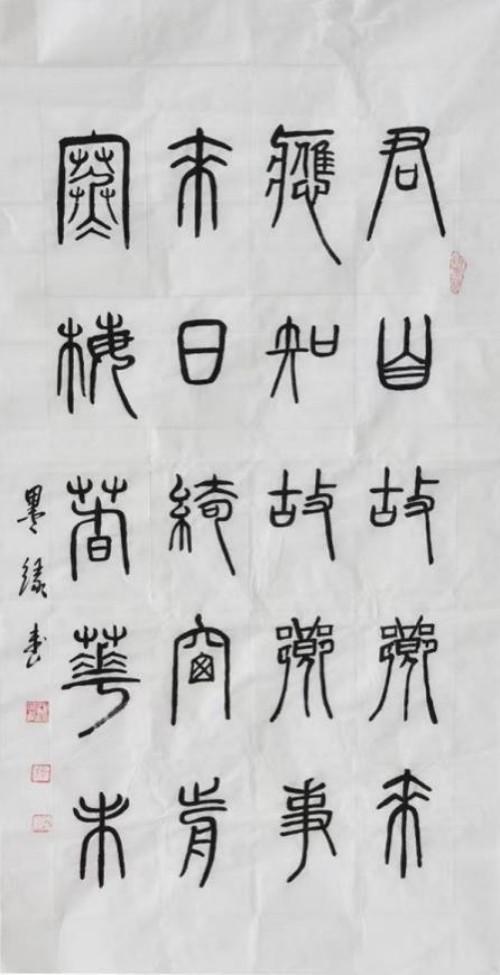 君自故鄉來
應知故鄉事
來日綺窗前
寒梅著華未
墨緣書